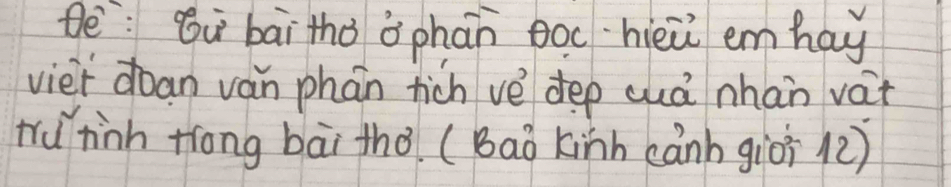 Đề: Từ bài thơ ở phần Đọc-hiểu em hãy
viết đoạn văn phân tích vẻ đẹp của nhân vật
trữ tình trong bài thơ. (Bảo kính cảnh giới 12)